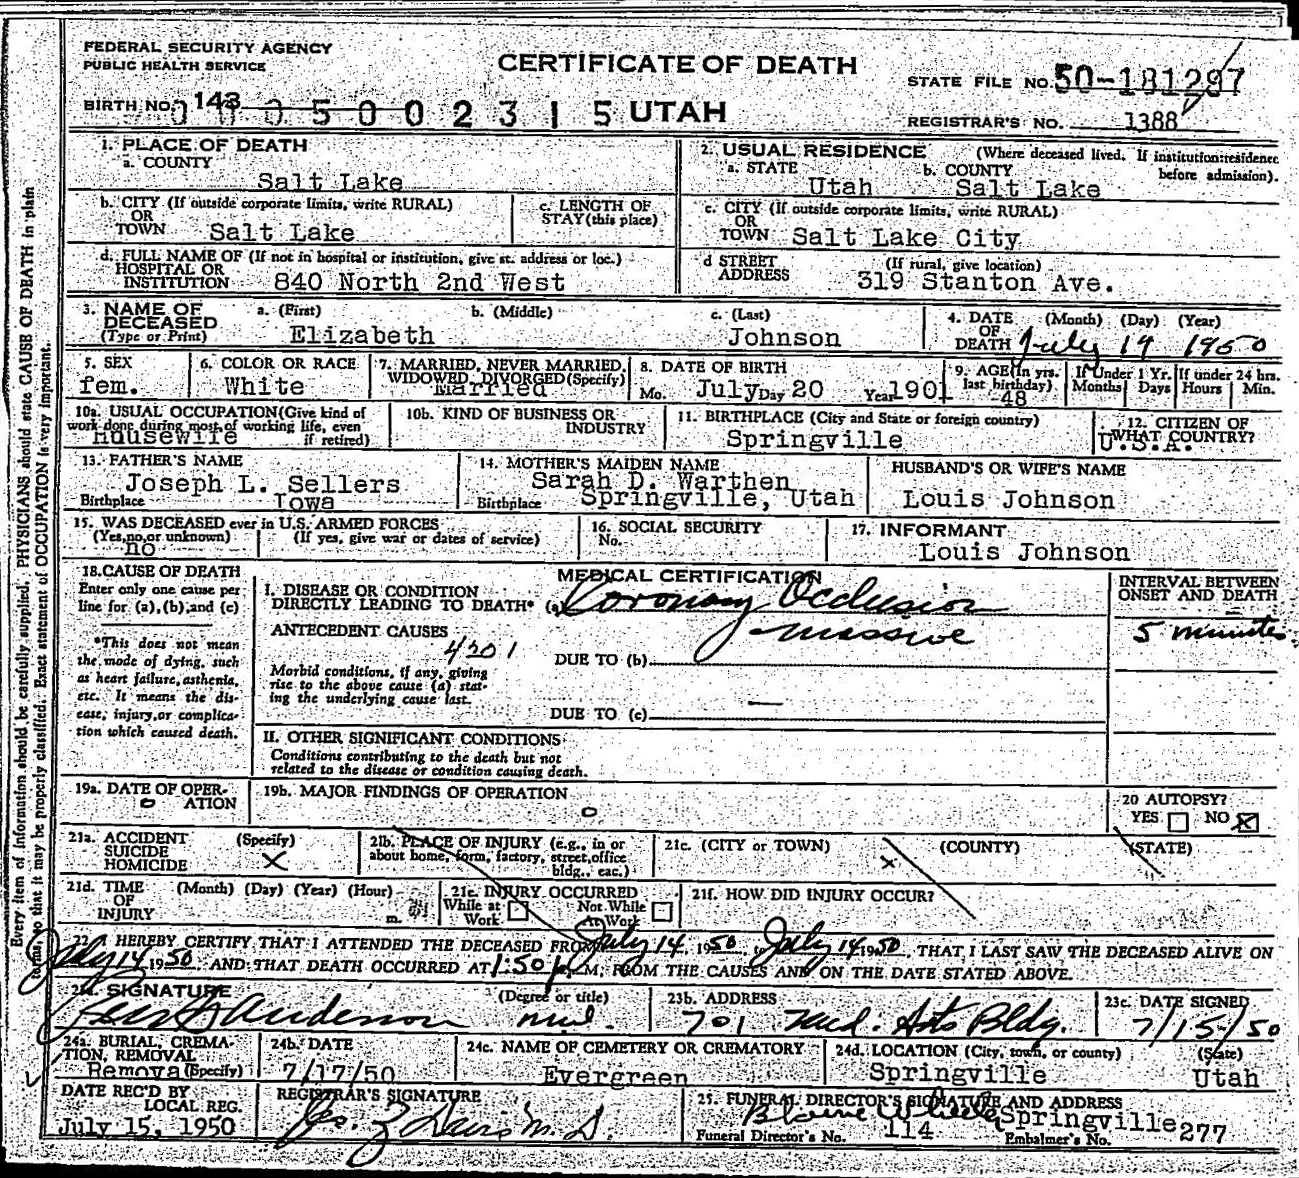 FEDERAL SECURITY AGENCY
PUBLIC HEALTH SERVICE
CERTIFICATE OF DEATH
STATE FILE NO. 50-181297
BIRTH NO. 143
0 0 5 0 0 2 3 1 5 UTAH
REGISTRAR'S NO. 1388
1. PLACE OF DEATH
a. COUNTY
Salt Lake
2. USUAL RESIDENCE (Where deceased lived. If institution: residence before admission).
a. STATE Utah b. COUNTY Salt Lake
b. CITY (If outside corporate limits, write RURAL)
OR
TOWN Salt Lake
c. LENGTH OF
STAY (this place)
c. CITY (If outside corporate limits, write RURAL)
OR
TOWN Salt Lake City
d. FULL NAME OF (If not in hospital or institution, give st. address or loc.)
HOSPITAL OR
INSTITUTION 840 North 2nd West
d STREET (If rural, give location)
ADDRESS 319 Stanton Ave.
3. NAME OF DECEASED (Type or Print)
a. (First) Elizabeth
b. (Middle)
c. (Last) Johnson
4. DATE OF DEATH (Month) (Day) (Year)
July 14 1950
5. SEX
fem.
6. COLOR OR RACE
White
7. MARRIED, NEVER MARRIED, WIDOWED, DIVORCED (Specify)
Married
8. DATE OF BIRTH
Mo. July Day 20 Year 1901
9. AGE (In yrs. last birthday)
48
If Under 1 Yr. Months Days
If under 24 hrs. Hours Min.
10a. USUAL OCCUPATION (Give kind of work done during most of working life, even if retired)
Housewife
10b. KIND OF BUSINESS OR INDUSTRY
11. BIRTHPLACE (City and State or foreign country)
Springville
12. CITIZEN OF WHAT COUNTRY?
U.S.A.
13. FATHER'S NAME
Joseph L. Sellers
Birthplace Iowa
14. MOTHER'S MAIDEN NAME
Sarah D. Warthen
Birthplace Springville, Utah
HUSBAND'S OR WIFE'S NAME
Louis Johnson
15. WAS DECEASED ever in U.S. ARMED FORCES
(Yes, no, or unknown) (If yes, give war or dates of service)
no
16. SOCIAL SECURITY No.
17. INFORMANT
Louis Johnson
18. CAUSE OF DEATH
Enter only one cause per line for (a), (b), and (c)
*This does not mean the mode of dying, such as heart failure, asthenia, etc. It means the disease, injury, or complication which caused death.
MEDICAL CERTIFICATION
I. DISEASE OR CONDITION
DIRECTLY LEADING TO DEATH* (a) Coronary Occlusion
massive
ANTECEDENT CAUSES
4201
DUE TO (b)
Morbid conditions, if any, giving rise to the above cause (a) stating the underlying cause last.
DUE TO (c)
INTERVAL BETWEEN ONSET AND DEATH
5 minutes.
II. OTHER SIGNIFICANT CONDITIONS
Conditions contributing to the death but not related to the disease or condition causing death.
19a. DATE OF OPERATION
o
19b. MAJOR FINDINGS OF OPERATION
o
20 AUTOPSY?
YES NO X
21a. ACCIDENT SUICIDE HOMICIDE (Specify)
X
21b. PLACE OF INJURY (e.g., in or about home, form, factory, street, office bldg., eac.)
21c. (CITY or TOWN) (COUNTY) (STATE)
x
21d. TIME OF INJURY (Month) (Day) (Year) (Hour) m.
21e. INJURY OCCURRED
While at Work Not While At Work
21f. HOW DID INJURY OCCUR?
22. I HEREBY CERTIFY THAT I ATTENDED THE DECEASED FROM July 14 1950, July 14 1950, THAT I LAST SAW THE DECEASED ALIVE ON
July 14 1950 AND THAT DEATH OCCURRED AT 1:50 p. M; FROM THE CAUSES AND ON THE DATE STATED ABOVE.
SIGNATURE (Degree or title)
Anderson m.d.
23b. ADDRESS
701 Med. Arts Bldg.
23c. DATE SIGNED
7/15/50
24a. BURIAL, CREMATION, REMOVAL (Specify)
Removal
24b. DATE
7/17/50
24c. NAME OF CEMETERY OR CREMATORY
Evergreen
24d. LOCATION (City, town, or county) (State)
Springville Utah
DATE REC'D BY LOCAL REG.
July 15, 1950
REGISTRAR'S SIGNATURE
Jos. Z Davis M.D.
25. FUNERAL DIRECTOR'S SIGNATURE AND ADDRESS
Blaine Springville
Funeral Director's No. 114 Embalmer's No. 277
Every item of information should be carefully supplied. PHYSICIANS should state CAUSE OF DEATH in plain
terms, so that it may be properly classified. Exact statement of OCCUPATION is very important.